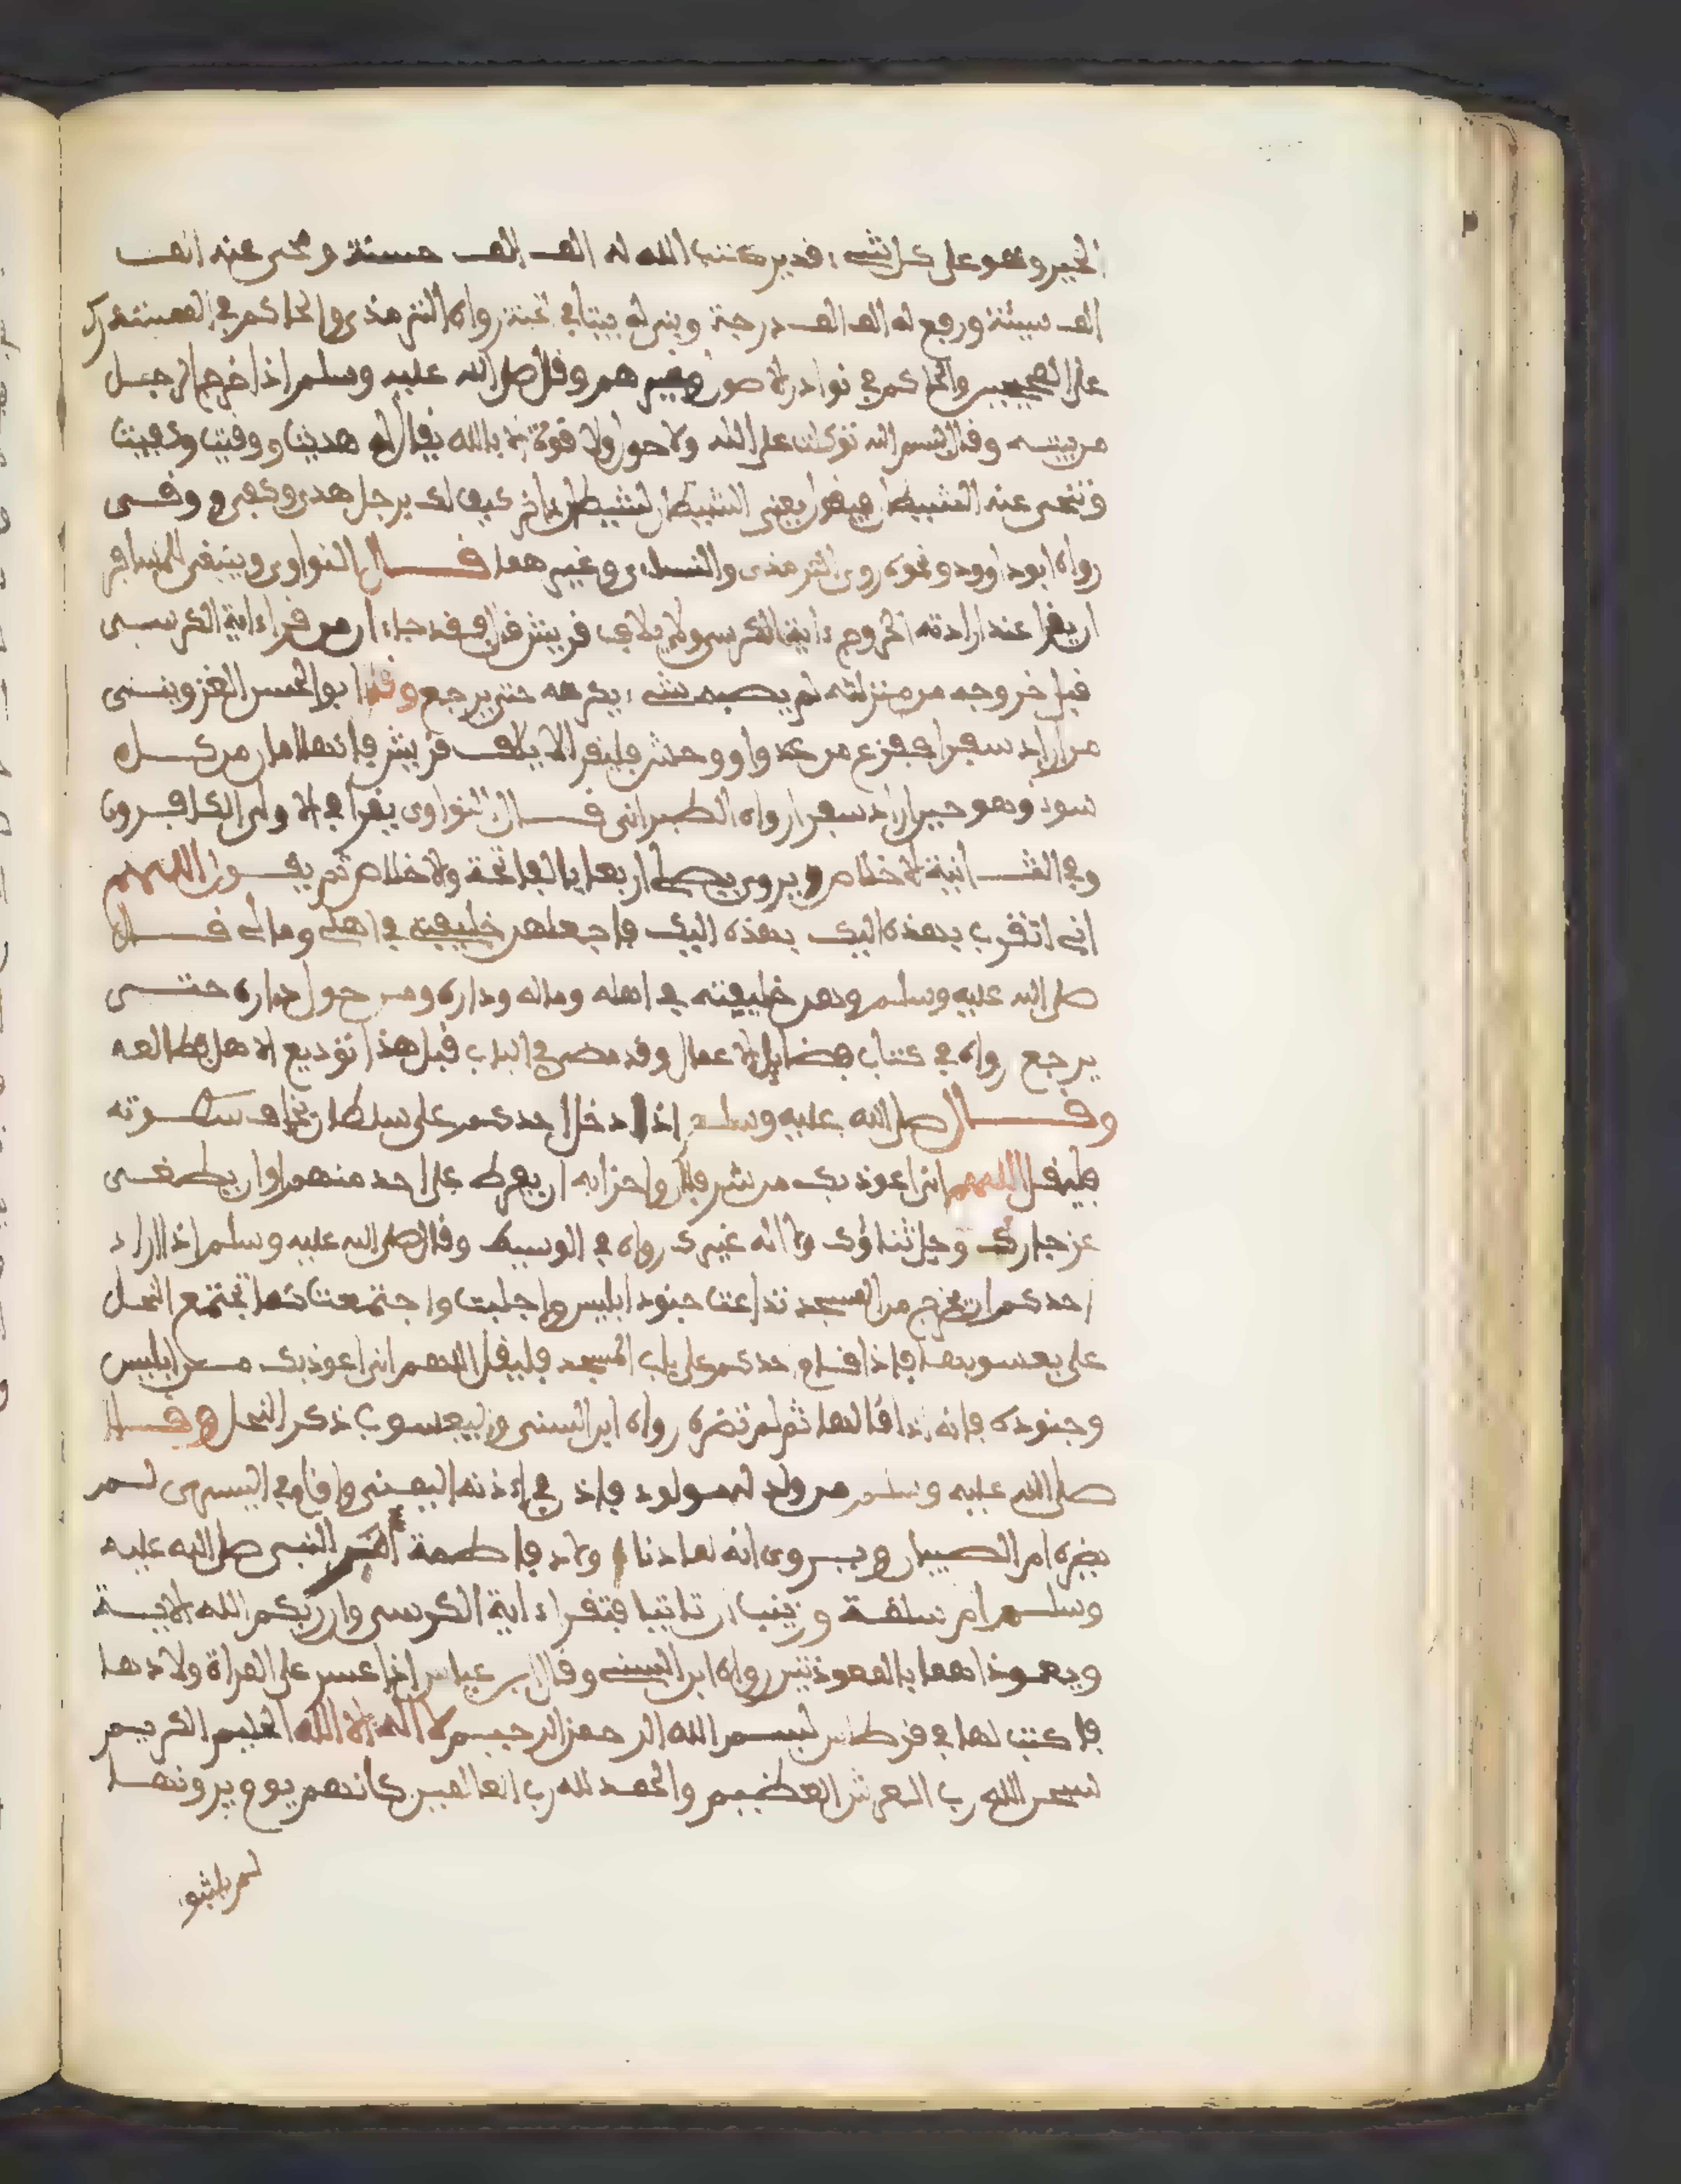 الخير وهو على كل شيء قدير كتب الله له الف الف حسنة ومحى عنه الف
الف سيئة ورفع له الف الف درجة وبنى له بيتا في الجنة رواه الترمذي والحاكم في المستدرك
على الصحيحين والحاكم في نوادر الاصول وغيرهم وقال صلى الله عليه وسلم اذا خرج الرجل
من بيته وقال بسم الله توكلت على الله ولا حول ولا قوة الا بالله يقال له هديت ووقيت وكفيت
وتنحى عنه الشيطان فيقول يعني الشيطان لشيطان ءاخر كيف لك برجل هدى وكفي ووقى
رواه ابو داوود ونحوه روى الترمذي والنساءي وغيرهما قال النواوي وينبغي للمسافر
ان يقرا عند ارادته الخروج ءاية الكرسي ولايلاف قريش فقد جاء ان من قرا ءاية الكرسي
قبل خروجه من منزلته لم يصبه شيء يكرهه حتى يرجع وقال ابو الحسن القزويني
من اراد سفرا ففزع من عدو او وحش فليقرا لايلاف قريش فانها امان من كل
سوء وهو حين اراد سفرا رواه الطبراني قال النواوي يقرا في الاولى الكافرون
وفي الثانية الاخلاص ويروى يصلي اربعا بالفاتحة والاخلاص ثم يقول اللهم
اني اتقرب بهذه اليك بهذه اليك فاجعلهن خليفتي في اهلي ومالي قال
صلى الله عليه وسلم وهن خليفته في اهله وماله وداره ومن حول داره حتى
يرجع رواه في كتاب فضايل الاعمال وقد مضى في الباب قبل هذا توديع الاهل فطالعه
وقال صلى الله عليه وسلم اذا دخل احدكم على سلطان يخاف سطوته
فليقل اللهم اني اعوذ بك من شر فلان واحزابه ان يفرط على احد منهم او ان يطغى
عز جارك وجل ثناؤك ولا اله غيرك رواه في الوسيط وقال صلى الله عليه وسلم اذا اراد
احدكم ان يخرج من المسجد تداعت جنود ابليس واجلبت واجتمعت كما تجتمع النحل
على يعسوبها فاذا قام احدكم على باب المسجد فليقل اللهم اني اعوذ بك من ابليس
وجنوده فانه اذا قالها ثم لم تضره رواه ابن السني واليعسوب ذكر النحل وقال
صلى الله عليه وسلم من ولد له مولود فاذن في اذنه اليمنى واقام في اليسرى لم
يضره ام الصبيان ويروى انه لما دنا ولاد فاطمة امر النبي صلى الله عليه
وسلم ام سلمة وزينب ان تاتيا فتقرا ءاية الكرسي وان ربكم الله الاية
ويعوذاهما بالمعوذتين رواه ابن السني وقال ابن عباس اذا عسر على المراة ولادها
فاكتب لها في قرطاس بسم الله الرحمن الرحيم لا اله الا الله الحليم الكريم
بسم الله رب العرش العظيم والحمد لله رب العالمين كانهم يوم يرونها
لم يلبثوا